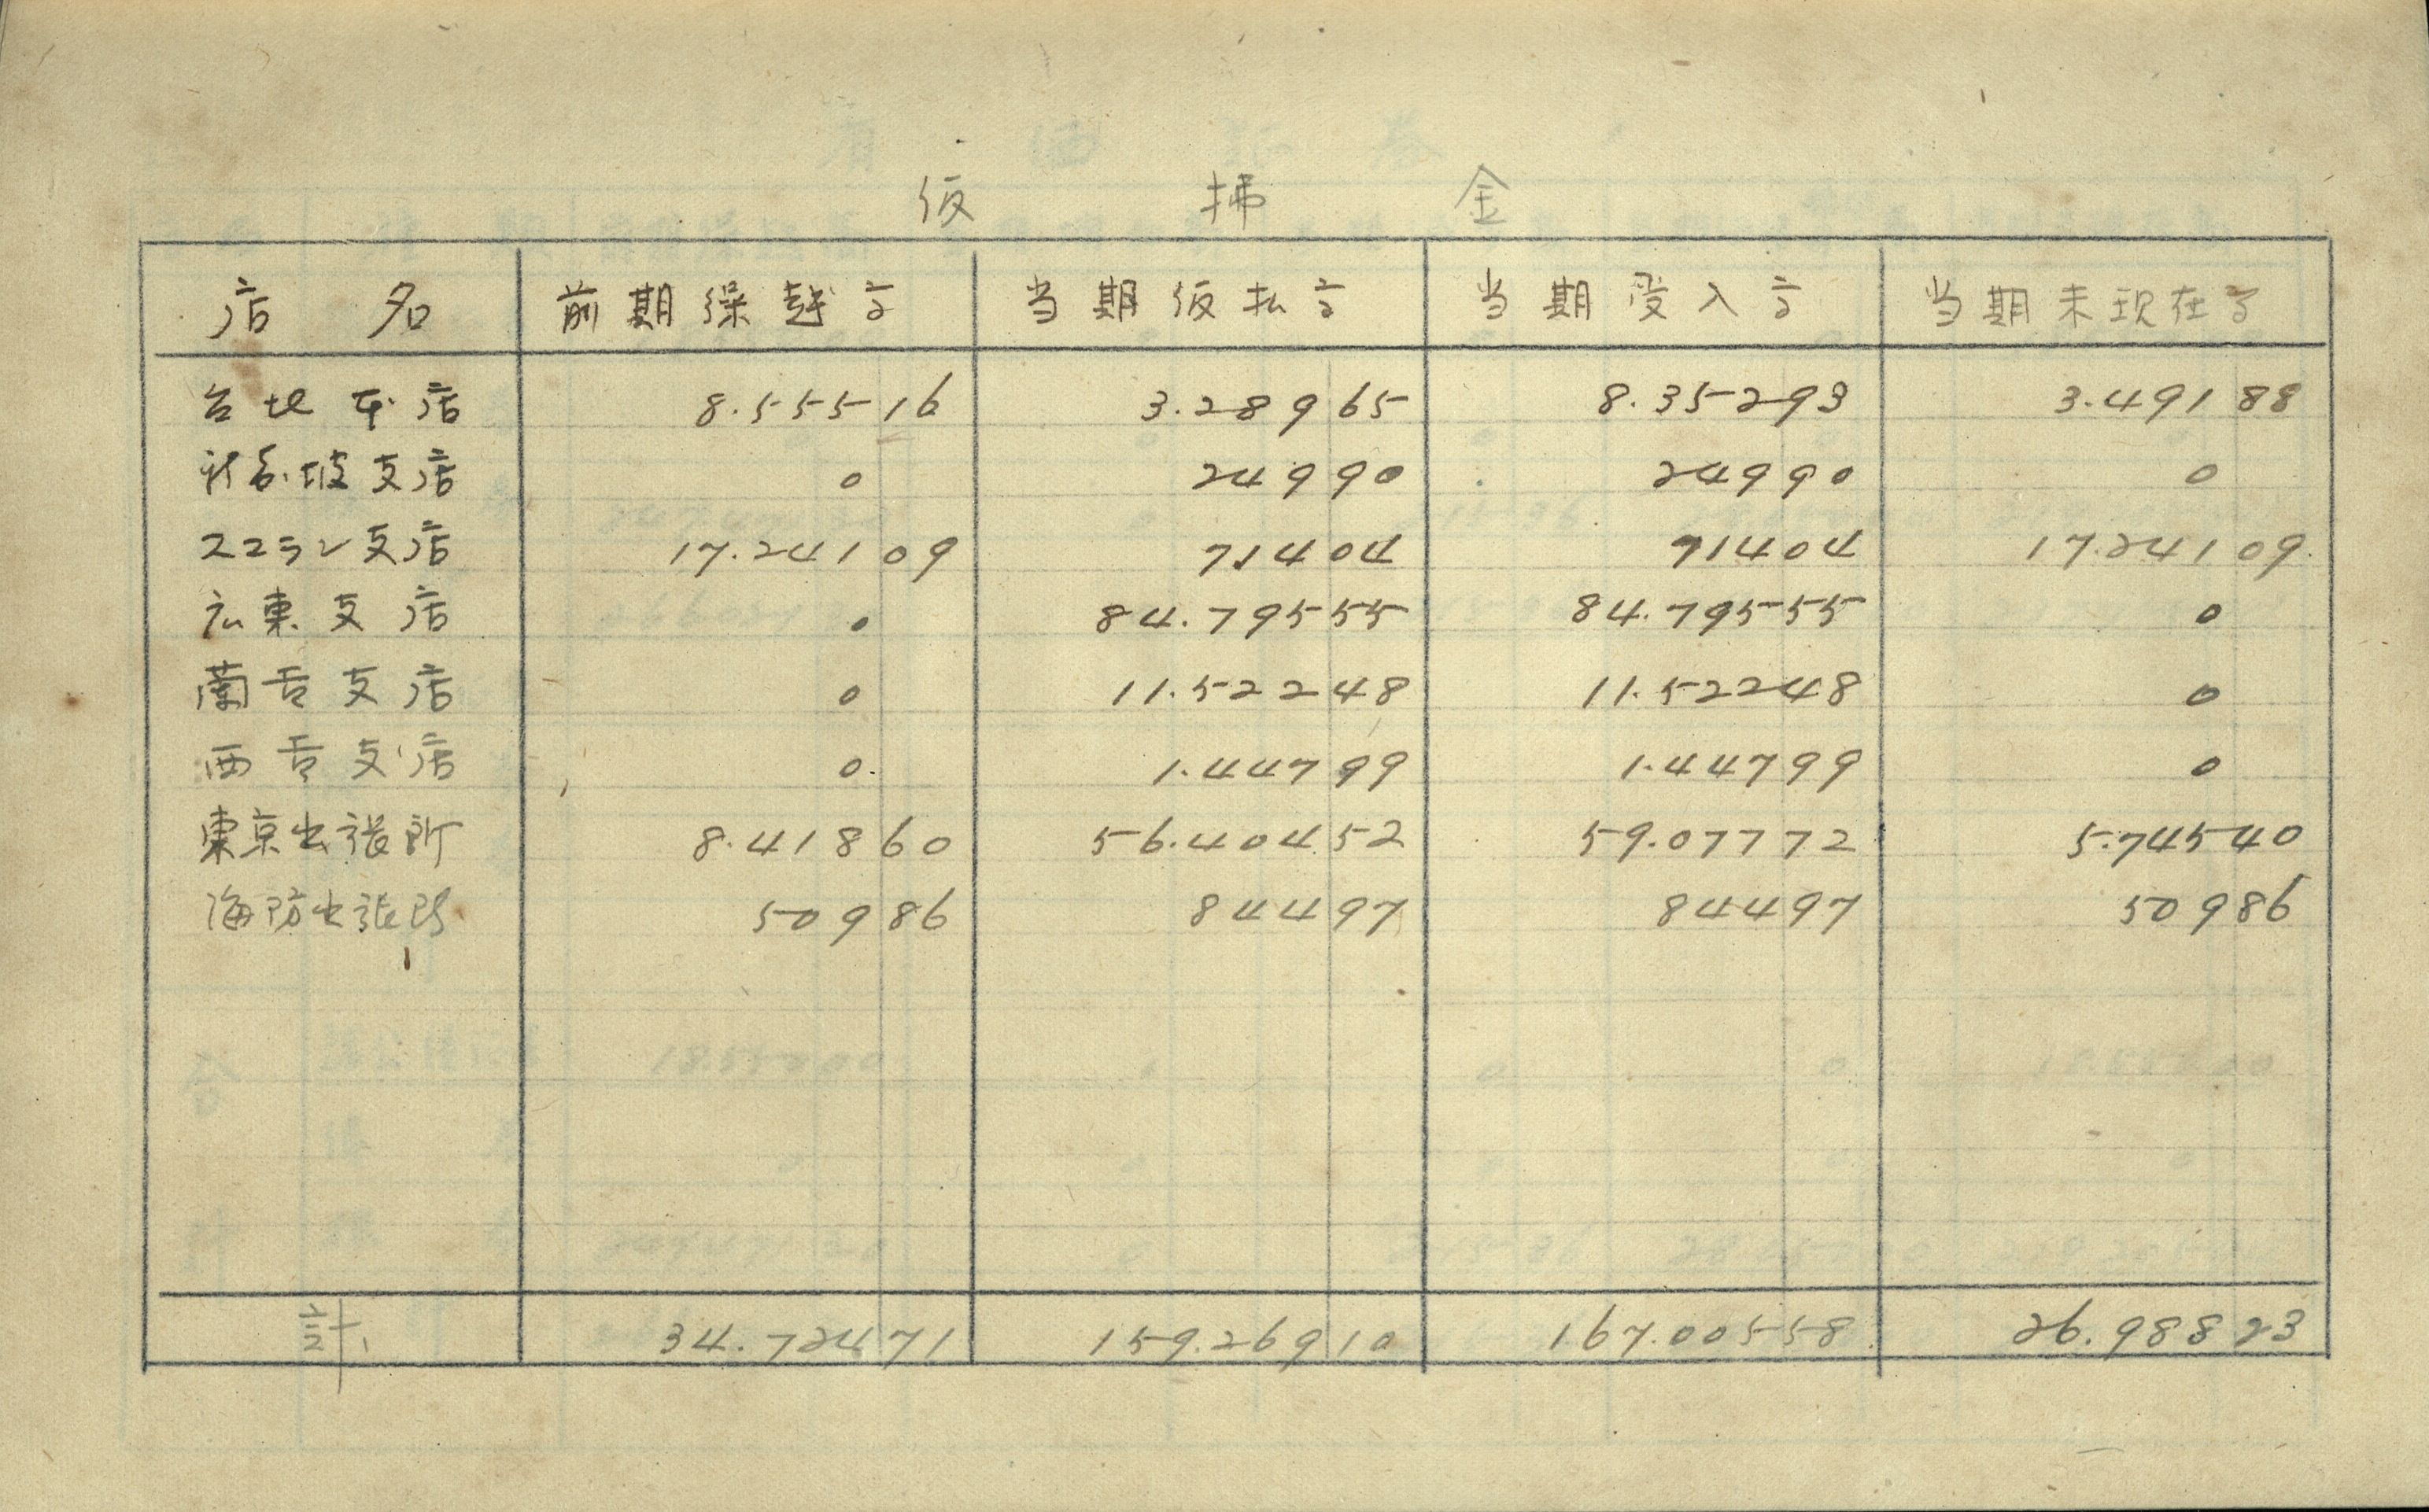 仮 拂 金
店 名 前期繰越高 当期仮払高 当期受入高 当期末現在高
台北本店 8.555 16 3.289 65 8.352 93 3.491 88
新嘉坡支店 0 249 90 249 90 0
スマラン支店 17.241 09 714 04 714 04 17.241 09
広東支店 0 84.795 55 84.795 55 0
蘭貢支店 0 11.522 48 11.522 48 0
西貢支店 0 1.447 99 1.447 99 0
東京出張所 8.418 60 56.404 52 59.077 72 5.745 40
海防出張所 509 86 844 97 844 97 509 86
計 34.724 71 159.269 10 167.005 58 26.988 23